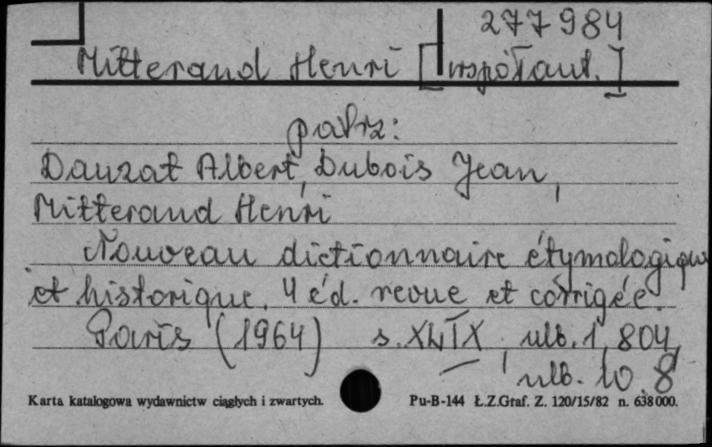 277984
Mitterand Henri [współaut.]
patrz:
Dauzat Albert, Dubois Jean,
Mitterand Henri
Nouveau dictionnaire étymologique
et historique. 4 éd. revue et corrigée.
Paris (1964) s. XLIX, nlb. 1, 804,
nlb. 10. 8°
Karta katalogowa wydawnictw ciągłych i zwartych. Pu-B-144 Ł.Z.Graf. Z. 120/15/82 n. 638000.